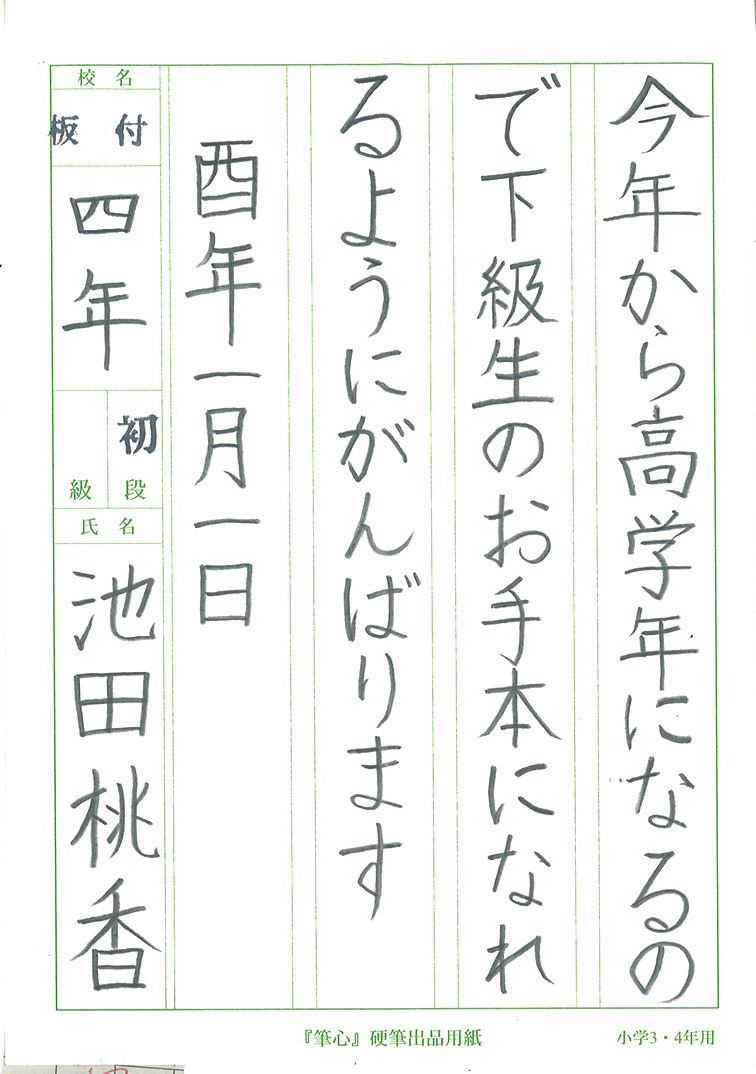 今年から高学年になるの
で下級生のお手本になれ
るようにがんばります
酉年一月一日
校名
板付
四年
初
段
級
氏名
池田桃香
『筆心』硬筆出品用紙
小学3・4年用